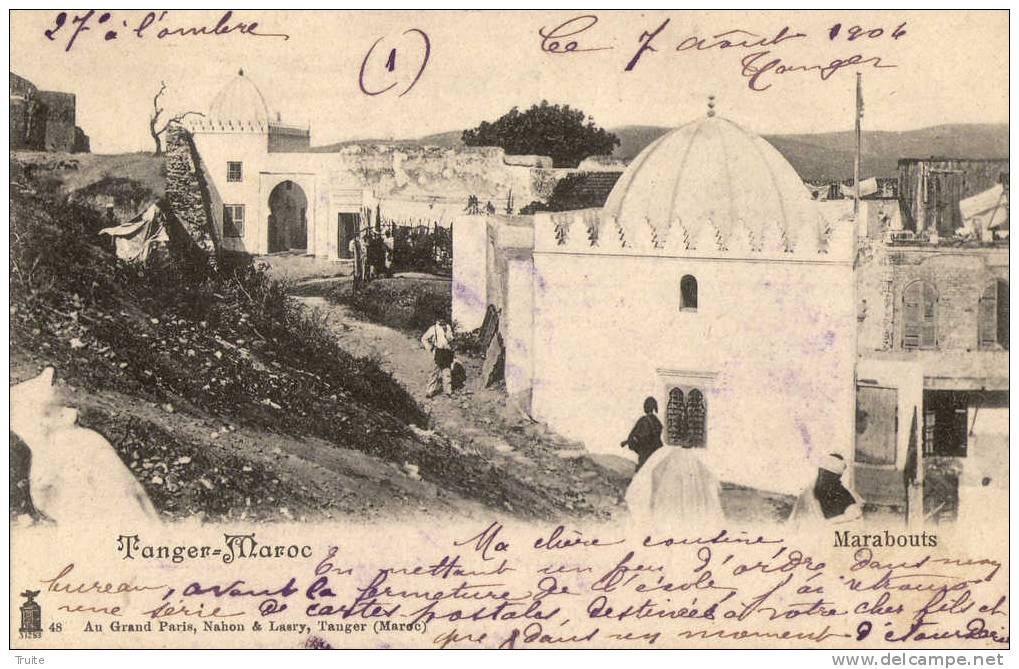 27° à l'ombre
(1)
Ce 7 août 1904
Tanger
Tanger=Maroc
Marabouts
Ma chère cousine
En mettant un peu d'ordre dans mon
bureau, avant la fermeture de l'école, j'ai retrouvé
une série de cartes postales destinées à votre cher fils et
que dans un moment d'étourderie
48 Au Grand Paris, Nahon & Lasry, Tanger (Maroc)
31283
Truite
http://www.delcampe.net